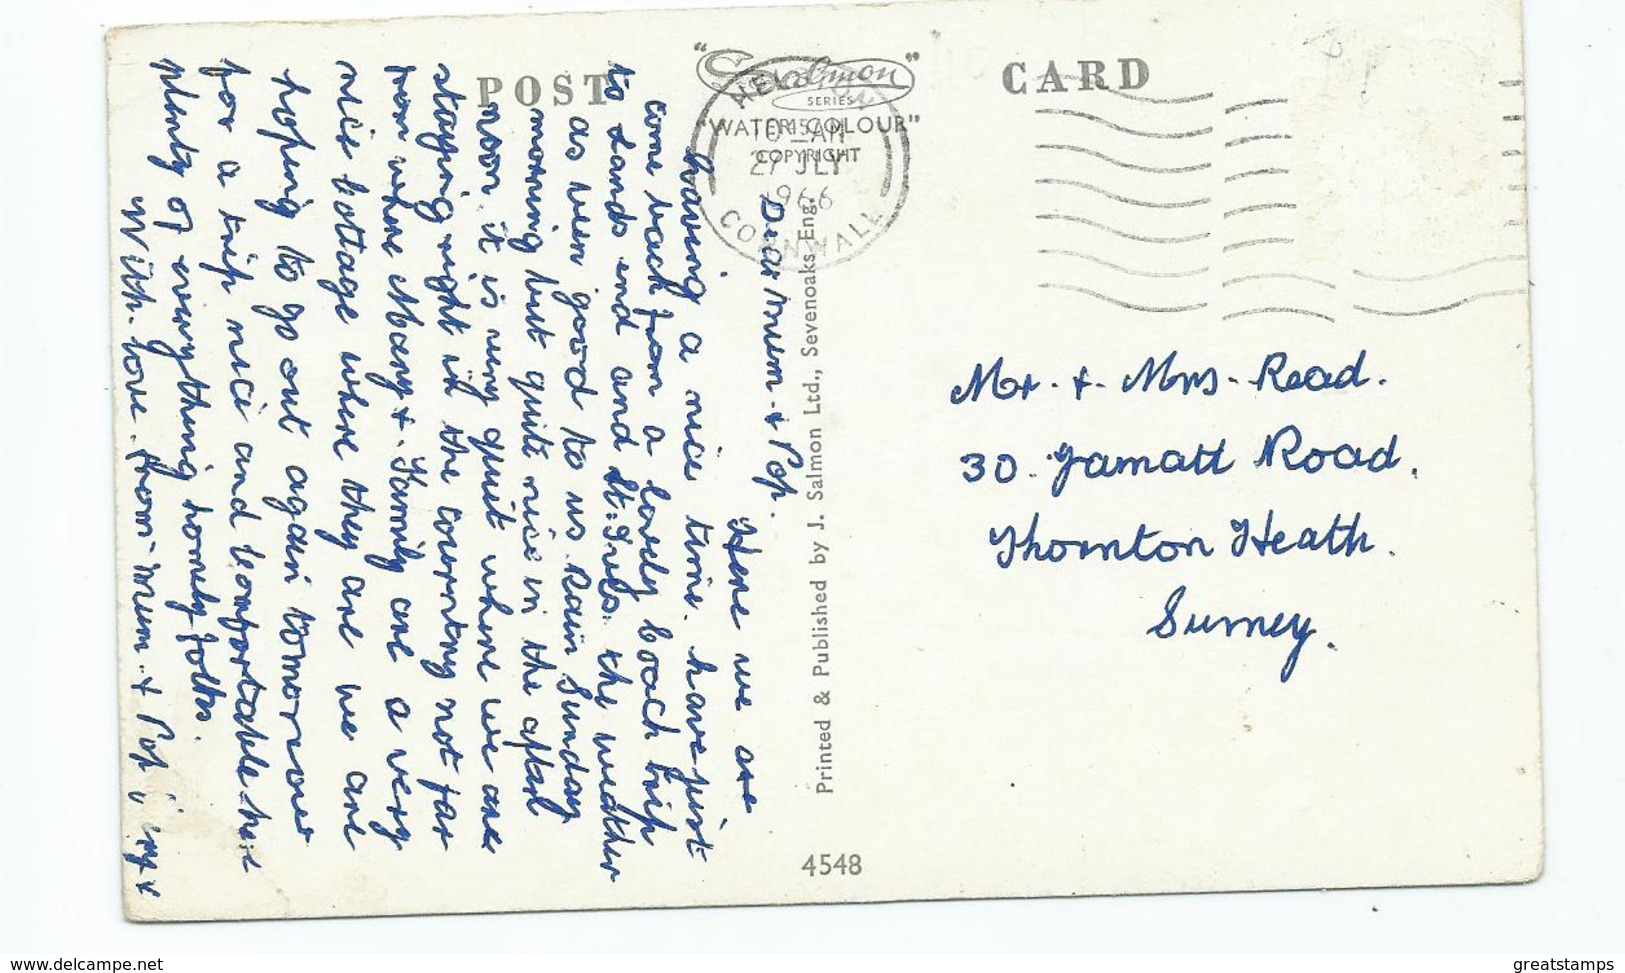 POST CARD
"Salmon SERIES
"WATER COLOUR"
COPYRIGHT
HELSTON
10 15 AM
27 JLY
1966
CORNWALL
Dear Mum & Pop.
Here we are
having a nice time. have just
come back from a lovely coach trip
to Lands end and St. Ives. the weather
as been good to us Rain Sunday
morning but quite nice in the after
noon. it is very quiet where we are
staying right in the country not far
from where Mary & Family are a very
nice cottage where they are we are
hoping to go out again tomorrow
for a trip nice and comfortable here
plenty of everything homely folks.
With love. from Mum & Pop
Printed & Published by J. Salmon Ltd., Sevenoaks, Eng.
4548
Mr. & Mrs. Read.
30. Road.
Thornton Heath.
Surrey.
www.delcampe.net
greatstamps